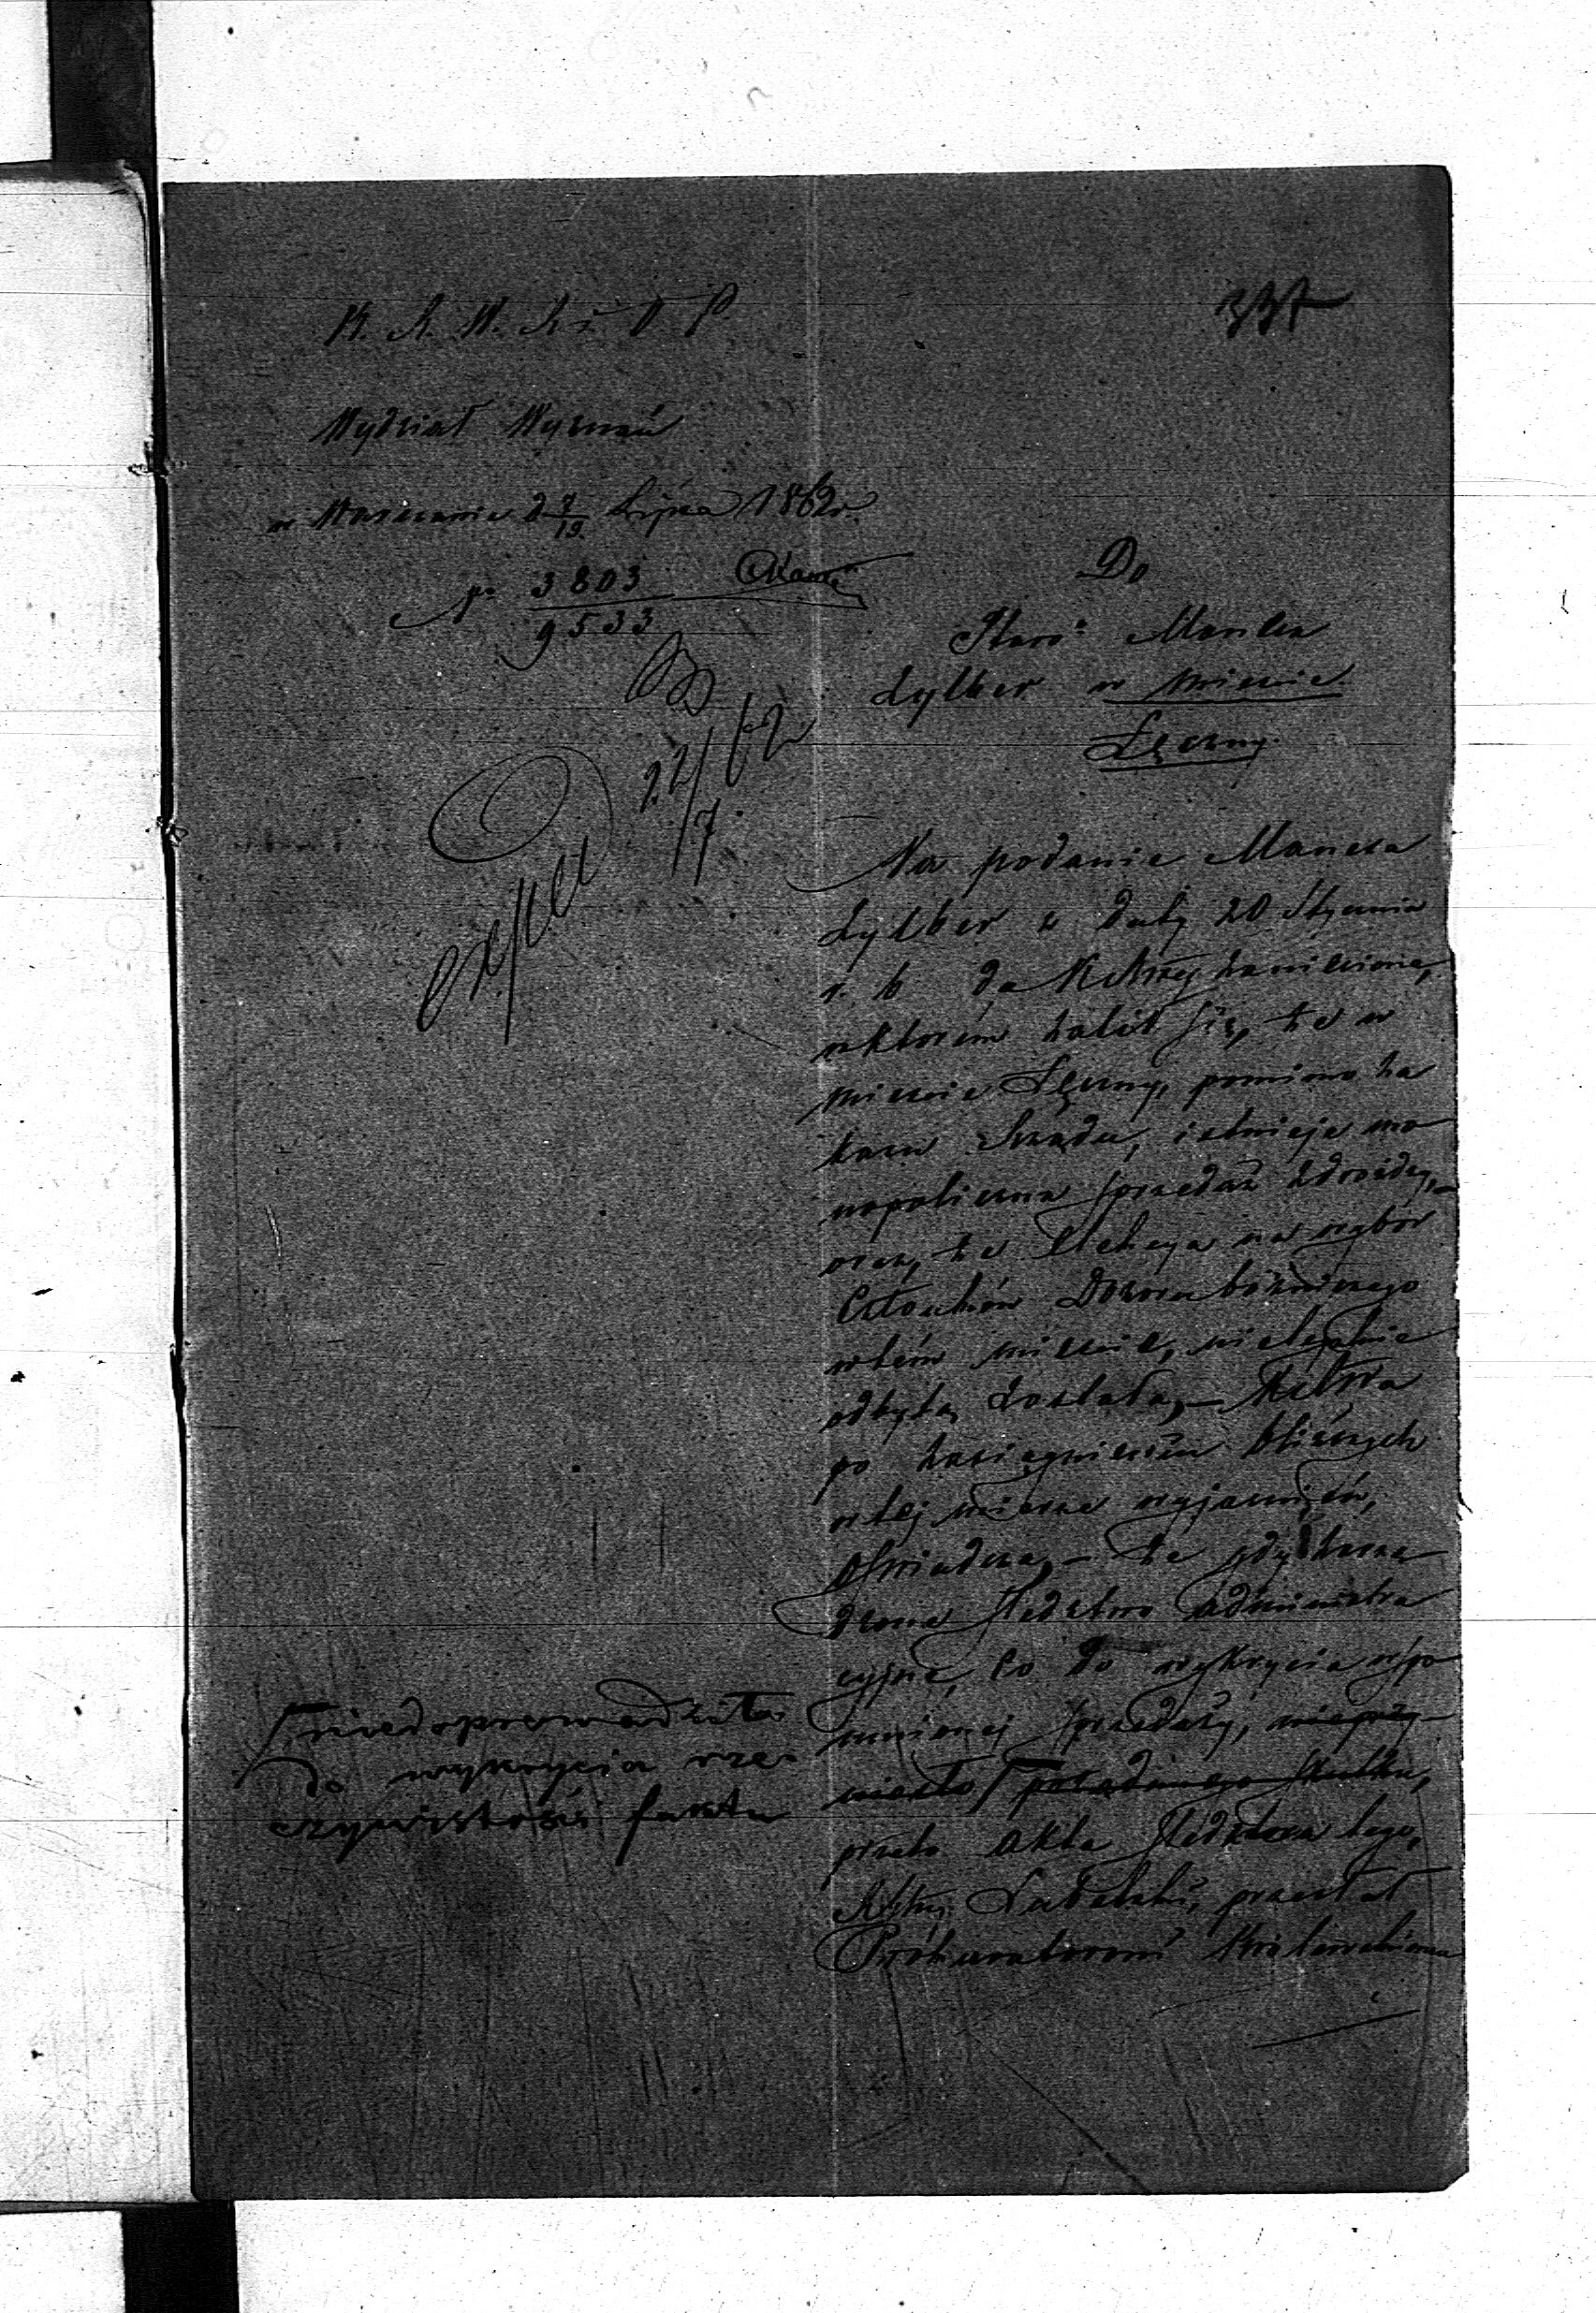 337
K. R. W. R i. O P.
Wydział Wyznań
w Warszawie d 7/19 Lipca 1862 r.
N. 3803
9533
Do
Staro: Moneka
Zylber w mieście
Łęczny.
22/7 62
exped
Na podanie Maneka
Zylber z daty 20 Stycznia
r. b do Kkrzą zaniesione,
w którem żalił się, że w
mieście Łęczny, pomimo za
kazu Rządu, istnieje mo
nopoliczna sprzedaż drożdży,
oraz, że elekcya na wybór
Członków Dozoru bóżniczego
w tém mieście, nielegalnie
odbytą została, –
po zasiągnieniu bliższych
w tej mierze wyjaśnień,
Oświadcza, – że gdy zarzą
dzone śledztwo administra
cyjne, co do wykrycia wspo
mnionej sprzedaży, nieprzy
niosło pożądanego skutku,
przeto akta śledztwa tego,
Lubelski, przesłał
Prókuratorowi Królewskiemu
niedoprowadziło
do wykrycia rze-
czywistości faktu